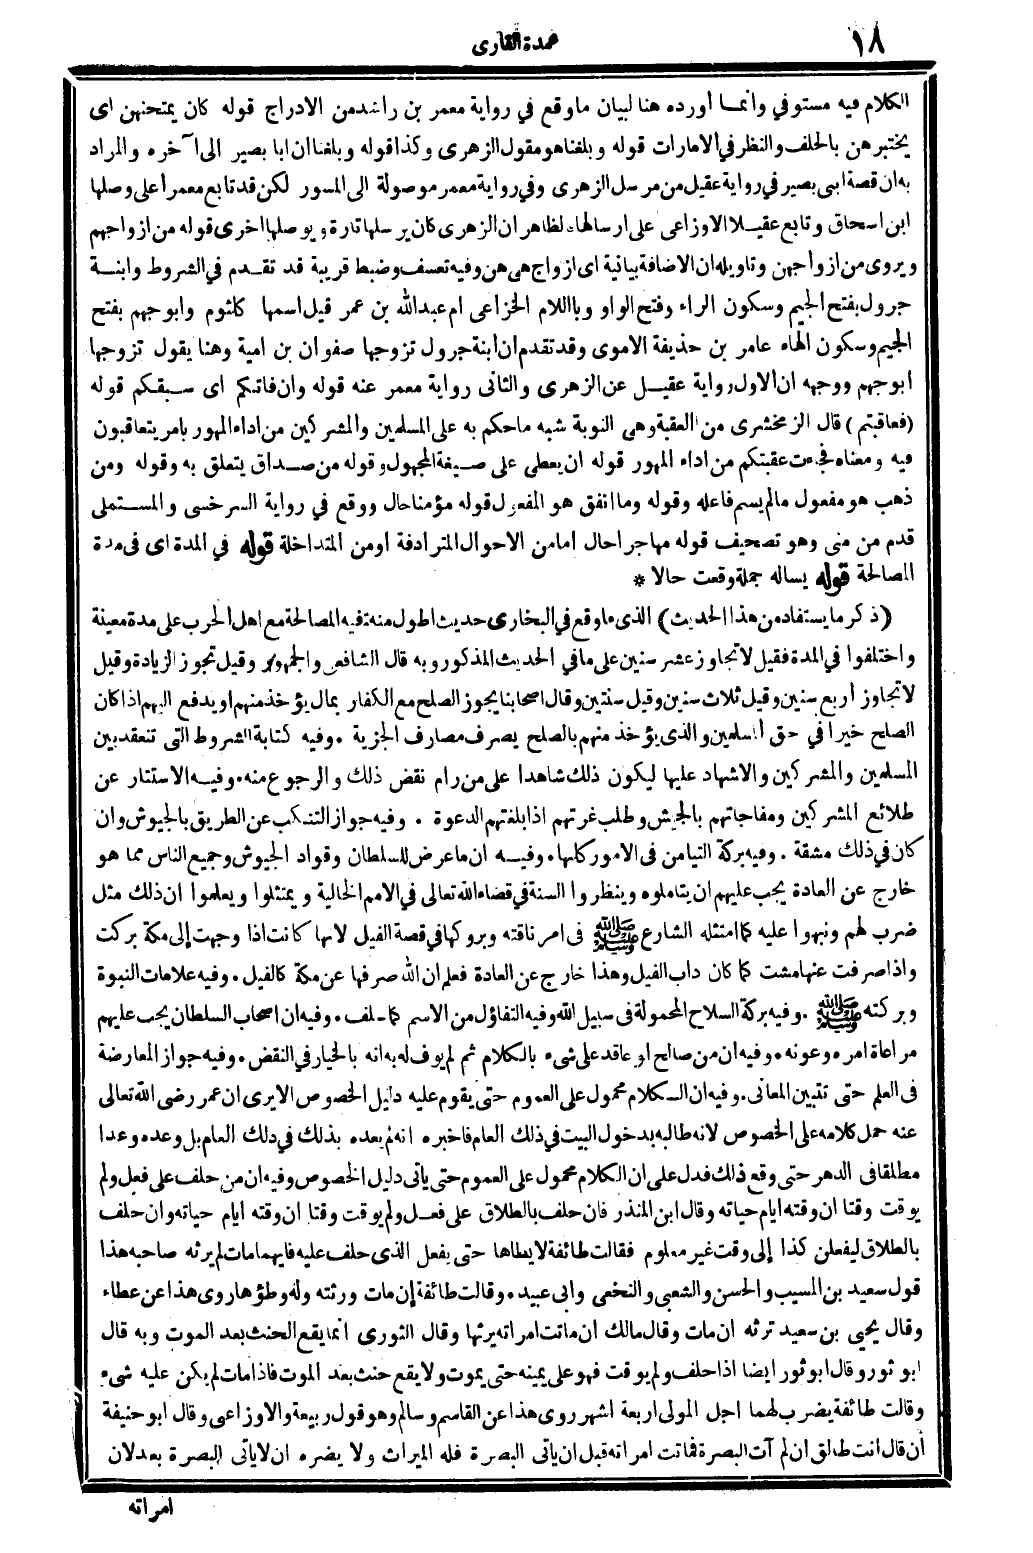 ١٨
عمدة القارى
الكلام فيه مستوفي وانما أورده هنا لبيان ماوقع في رواية معمر بن راشد من الادراج قوله كان يمتحنهن اى
يختبرهن بالحلف والنظر في الامارات قوله وبلغنا هو مقول الزهرى وكذا قوله وبلغنا ان ابا بصير الى آخره والمراد
به ان قصة ابى بصير في رواية عقيل من مرسل الزهرى وفي رواية معمر موصولة الى المسور لكن قد تابع معمرا على وصلها
ابن اسحاق وتابع عقيلا الاوزاعى على ارسالها لظاهر ان الزهرى كان يرسلها تارة ويوصلها اخرى قوله من ازواجهم
ويروى من ازواجهن وتاويله ان الاضافة بيانية اى ازواج هى هن وفيه تعسف وضبط قريبة قد تقدم في الشروط وابنة
جرول بفتح الجيم وسكون الراء وفتح الواو وبااللام الخزاعى ام عبدالله بن عمر قيل اسمها كلثوم وابوجهم بفتح
الجيم وسكون الهاء عامر بن حذيفة الاموى وقد تقدم ان ابنة جرول تزوجها صفوان بن امية وهنا يقول تزوجها
ابوجهم ووجهه ان الاول رواية عقيل عن الزهرى والثانى رواية معمر عنه قوله وان فاتكم اى سبقكم قوله
(فعاقبتم) قال الزمخشرى من العقبة وهى النوبة شبه ماحكم به على المسلمين والمشركين من اداء المهور بامر يتعاقبون
فيه ومعناه فجاءت عقبتكم من اداء المهور قوله ان يعطى على صيغة المجهول وقوله من صداق يتعلق به وقوله ومن
ذهب هو مفعول مالم يسم فاعله وقوله وما انفق هو المفعول قوله مؤمنا حال ووقع في رواية السرخسى والمستملى
قدم من منى وهو تصحيف قوله مهاجرا حال امامن الاحوال المترادفة اومن المتداخلة قوله في المدة اى فى مدة
المصالحة قوله يساله جملة وقعت حالا *
(ذكر ما يستفاد من هذا الحديث) الذى ماوقع في البخارى حديث اطول منه: فيه المصالحة مع اهل الحرب على مدة معينة
واختلفوا في المدة فقيل لا تجاوز عشر سنين على مافي الحديث المذكور وبه قال الشافعى والجمهور وقيل تجوز الزيادة وقيل
لاتجاوز أربع سنين وقيل ثلاث سنين وقيل سنتين وقال اصحابنا يجوز الصلح مع الكفار بمال يؤخذ منهم او يدفع اليهم اذا كان
الصلح خيرا في حق المسلمين والذى يؤخذ منهم بالصلح يصرف مصارف الجزية . وفيه كتابة الشروط التى تنعقد بين
المسلمين والمشركين والاشهاد عليها ليكون ذلك شاهدا على من رام نقض ذلك والرجوع منه . وفيه الاستتار عن
طلائع المشركين ومفاجاتهم بالجيش وطلب غرتهم اذا بلغتهم الدعوة . وفيه جواز التنكب عن الطريق بالجيوش وان
كان في ذلك مشقة . وفيه بركة التيامن فى الامور كلها . وفيه ان ماعرض للسلطان وقواد الجيوش وجميع الناس مما هو
خارج عن العادة يجب عليهم ان يتاملوه وينظروا السنة في قضاء الله تعالى في الامم الخالية ويمتثلوا ويعلموا ان ذلك مثل
ضرب لهم ونبهوا عليه كما امتثله الشارع ﷺ فى امر ناقته وبروكها في قصة الفيل لانها كانت اذا وجهت إلى مكة بركت
واذا صرفت عنها مشت كما كان داب الفيل وهذا خارج عن العادة فعلم ان الله صرفها عن مكة كالفيل . وفيه علامات النبوة
وبركته ﷺ . وفيه بركة السلاح المحمولة فى سبيل الله وفيه التفاؤل من الاسم كما سلف . وفيه ان اصحاب السلطان يجب عليهم
مراعاة امره وعونه . وفيه ان من صالح او عاقد على شىء بالكلام ثم لم يوف له به انه بالخيار في النقض . وفيه جواز المعارضة
فى العلم حتى تتبين المعانى . وفيه ان الكلام محمول على العموم حتى يقوم عليه دليل الخصوص الا يرى ان عمر رضى الله تعالى
عنه حمل كلامه على الخصوص لانه طالبه بدخول البيت في ذلك العام فاخبره انه لم يعده بذلك في ذلك العام بل وعده وعدا
مطلقا فى الدهر حتى وقع ذلك فدل على ان الكلام محمول على العموم حتى ياتى دليل الخصوص وفيه ان من حلف على فعل ولم
يوقت وقتا ان وقته ايام حياته وقال ابن المنذر فان حلف بالطلاق على فعل ولم يوقت وقتا ان وقته ايام حياته وان حلف
بالطلاق ليفعلن كذا إلى وقت غير معلوم فقالت طائفة لايطاها حتى يفعل الذى حلف عليه فايهما مات لم يرثه صاحبه هذا
قول سعيد بن المسيب والحسن والشعبى والنخعى وابى عبيد . وقالت طائفة إن مات ورثته وله وطؤها روى هذا عن عطاء
وقال يحيى بن سعيد ترثه ان مات وقال مالك ان ماتت امراته يرثها وقال الثورى انما يقع الحنث بعد الموت وبه قال
ابو ثور وقال ابو ثور ايضا اذا حلف ولم يوقت فهو على يمينه حتى يموت ولا يقع حنث بعد الموت فاذا مات لم يكن عليه شىء
وقالت طائفة يضرب لهما اجل المولى اربعة اشهر روى هذا عن القاسم وسالم وهو قول ربيعة والاوزاعى وقال ابو حنيفة
أن قال انت طالق ان لم آت البصرة فماتت امراته قبل ان ياتى البصرة فله الميراث ولا يضره ان لا ياتى البصرة بعد لان
امراته